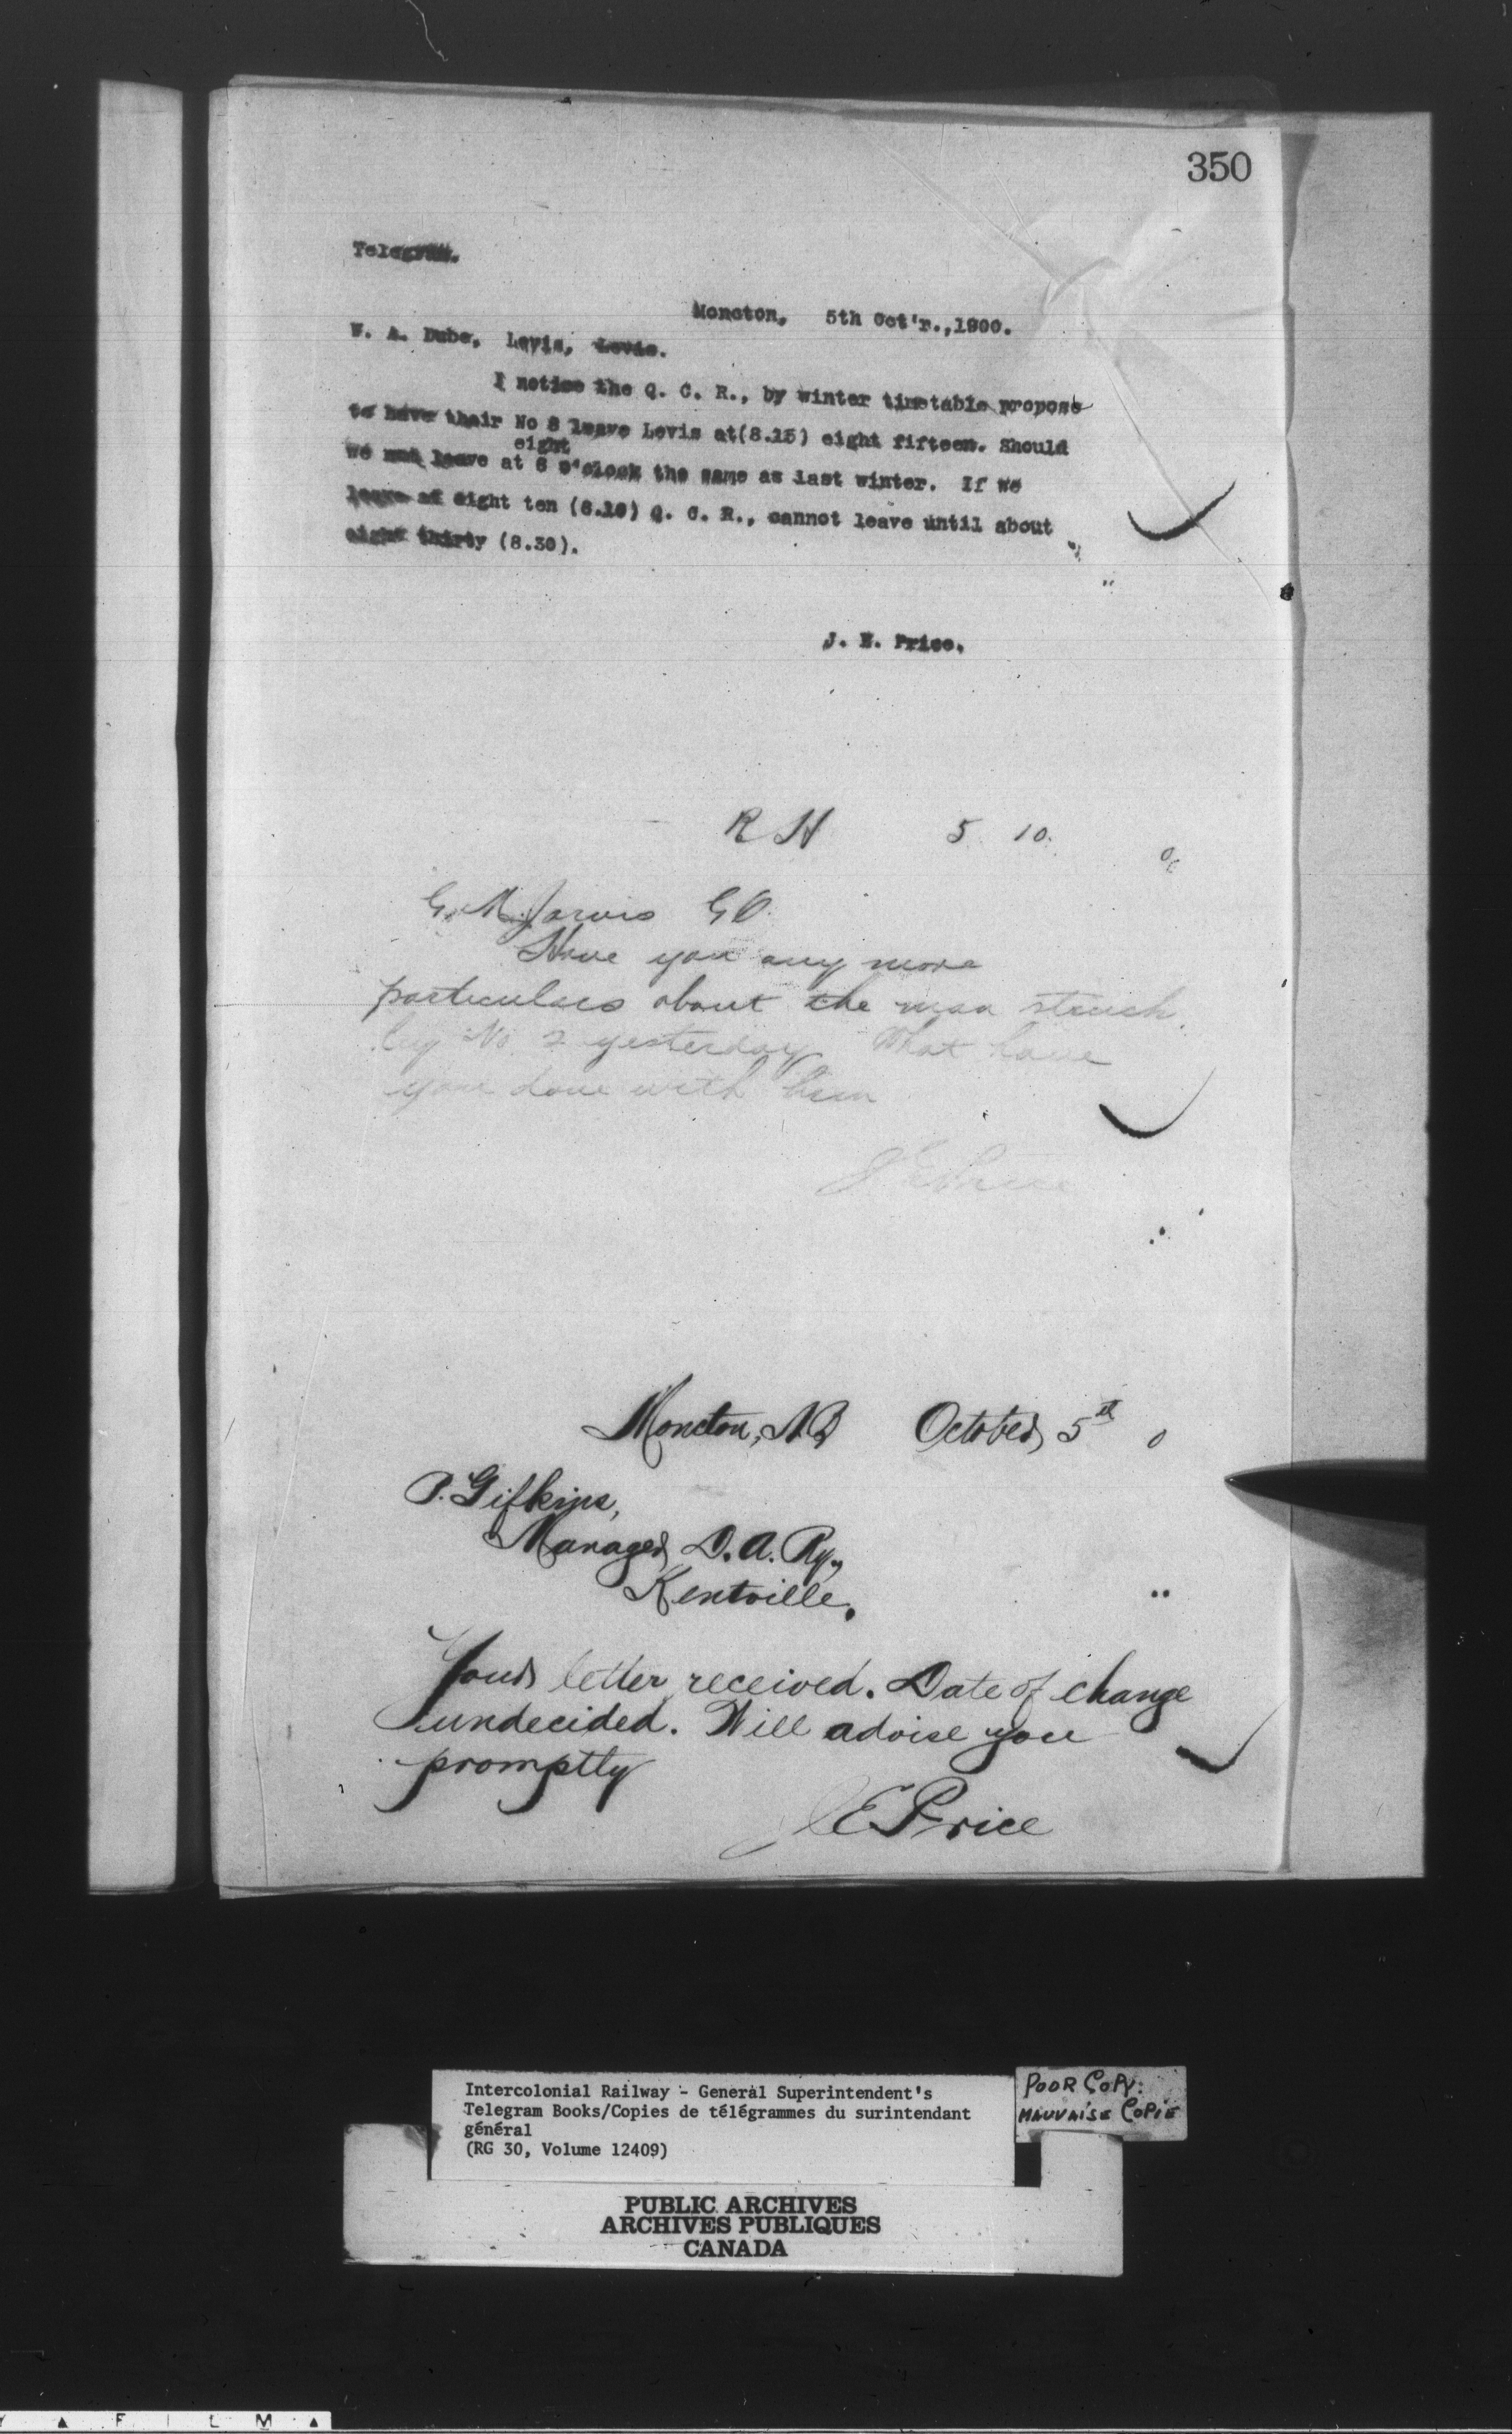 350
Telegram.
Moncton, 5th Oct'r.,1900.
W. A. Dube, Levis, Levis.
I notice the Q. C. R., by winter timetable propose
to have their No 8 leave Levis at(8.15) eight fifteen. Should
eight
we not leave at 8 o'clock the same as last winter. If we
leave at eight ten (8.10) Q. C. R., cannot leave until about
eight thirty (8.30).
J. E. Price.
R H 5 10.
G. M. Jarvis GO
Have you any more
particulars about the man struck
by No. 2 yesterday What have
you done with him
J E Price
Moncton, N.B October 5th 0
P. Gifkins,
Manager, D. A. Ry.,
Kentville.
Your letter received. Date of change
undecided. Will advise you
promptly
J E Price
Intercolonial Railway - General Superintendent's
Telegram Books/Copies de télégrammes du surintendant
général
(RG 30, Volume 12409)
POOR COPY:
MAUVAISE COPIE
PUBLIC ARCHIVES
ARCHIVES PUBLIQUES
CANADA
F I L M